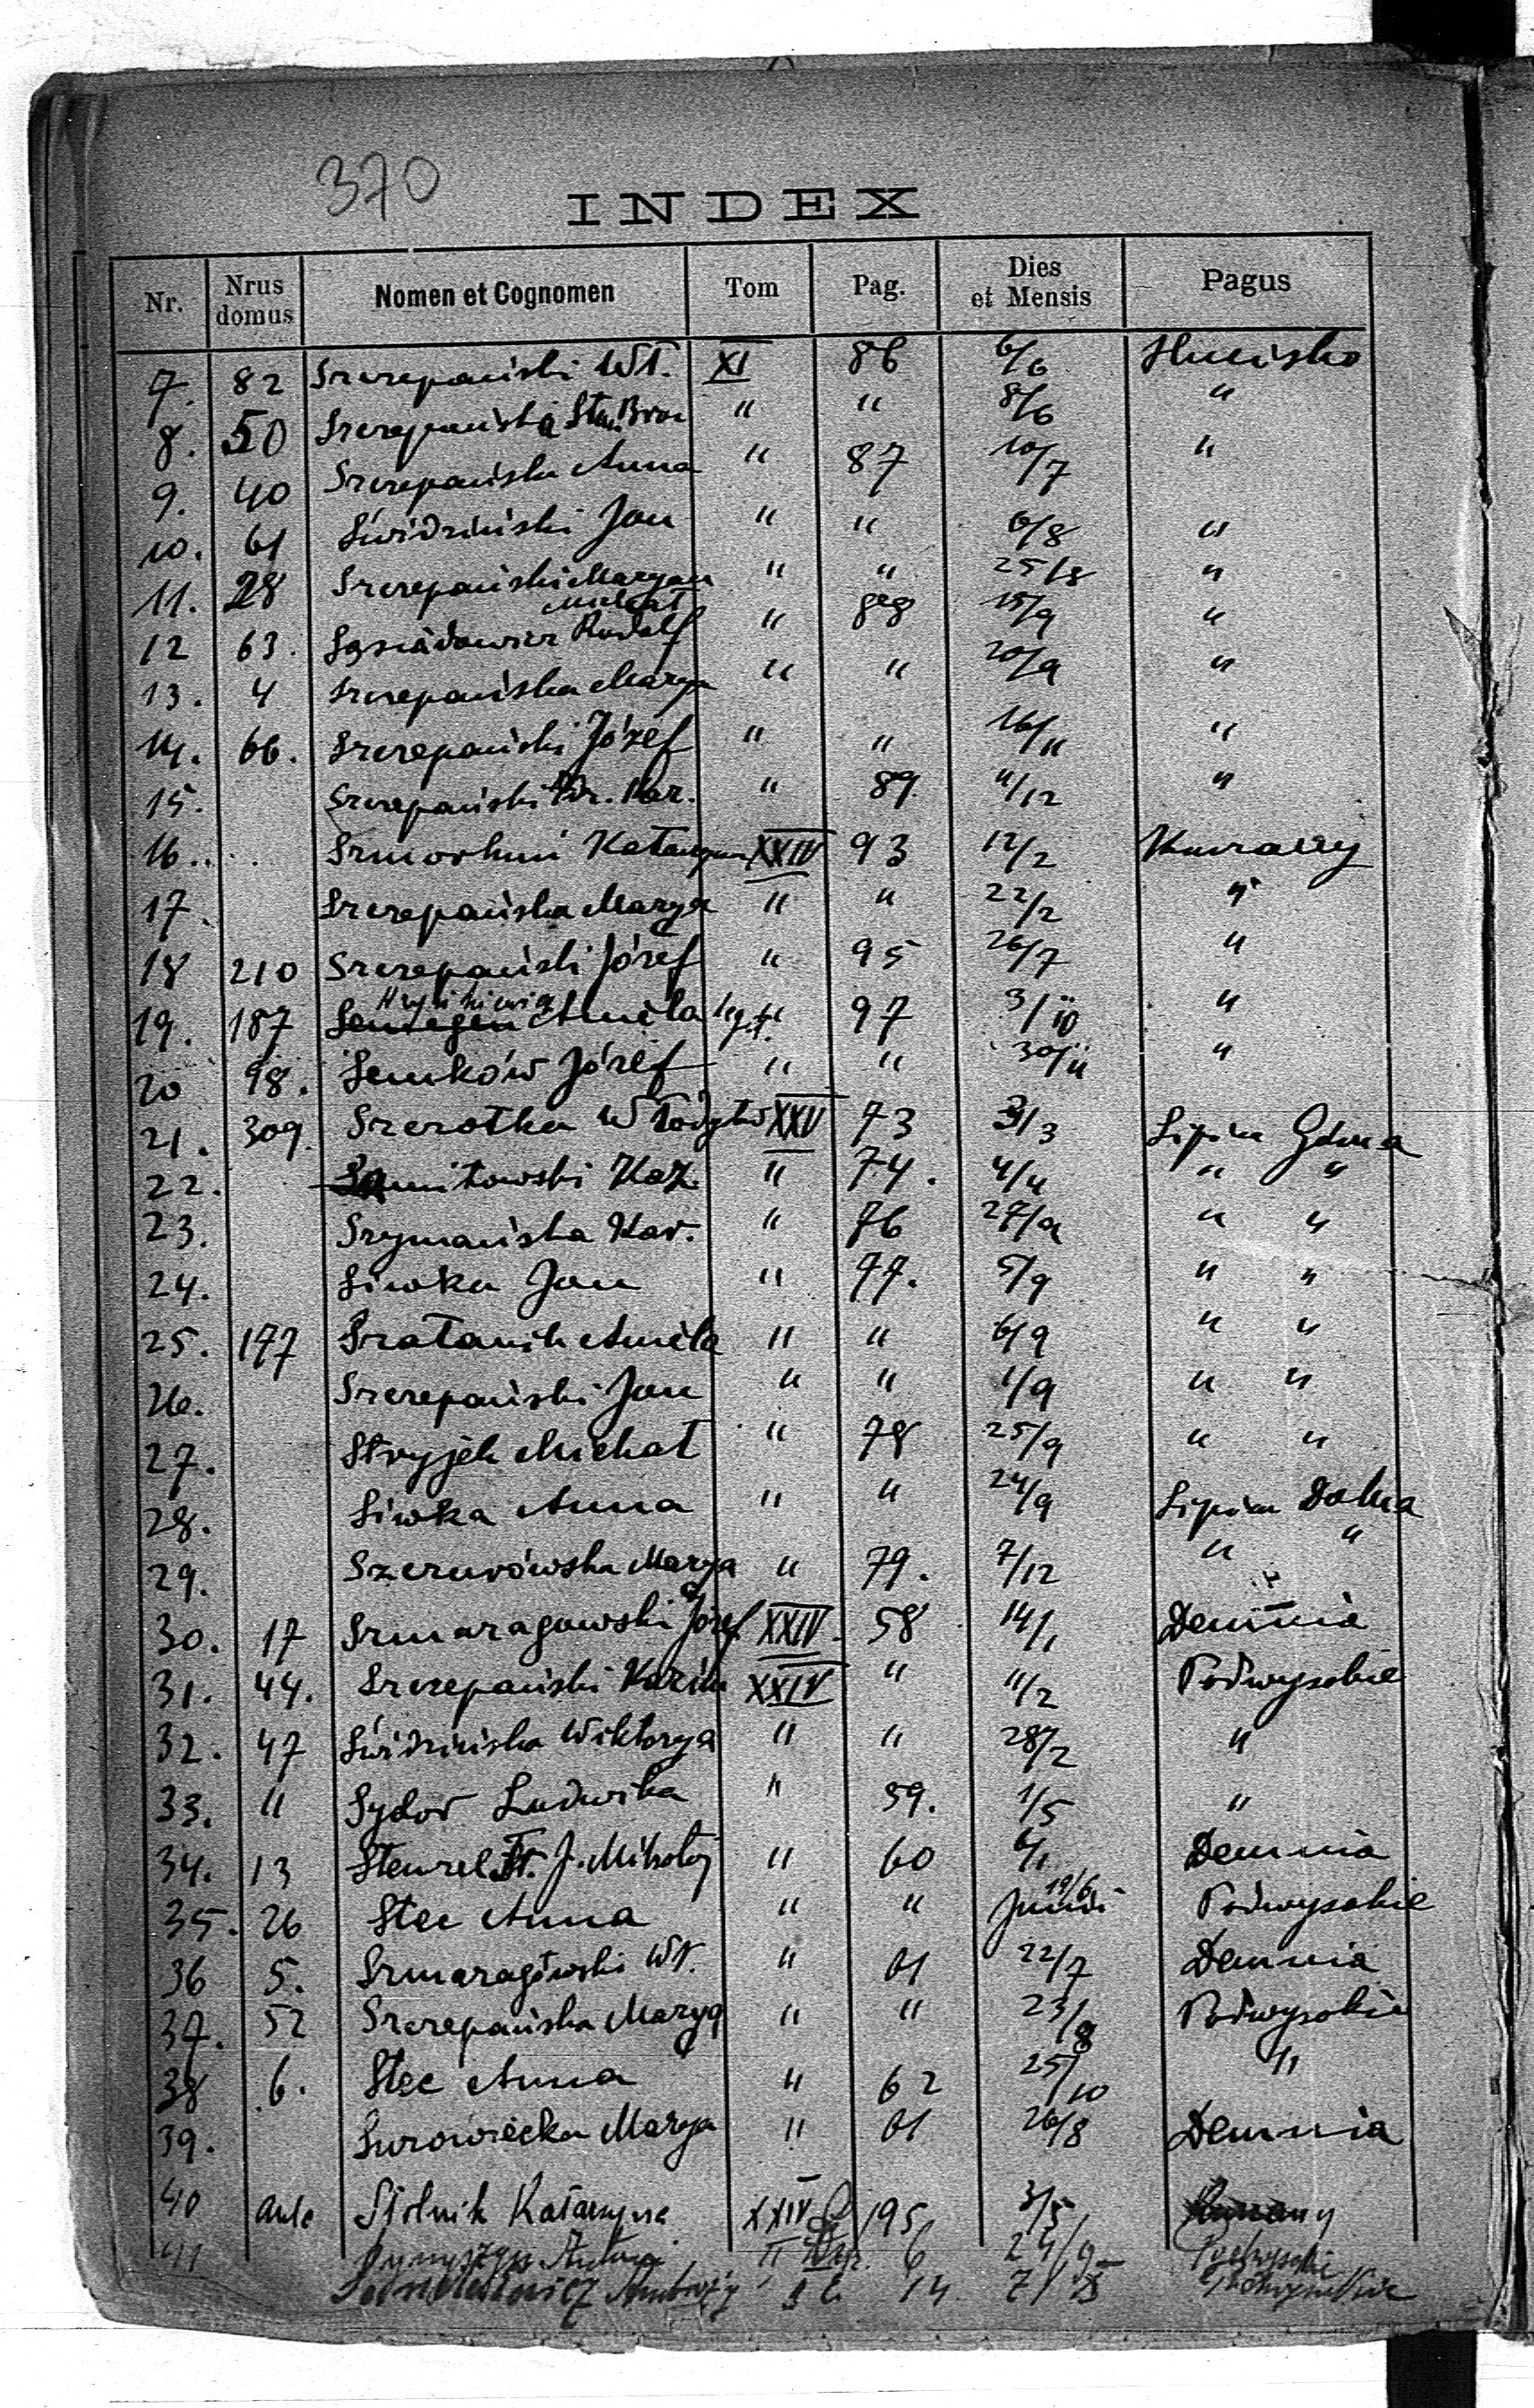 370
INDEX
Nr. Nrus domus Nomen et Cognomen Tom Pag. Dies et Mensis Pagus
7. 82 Szczepański Wł. XI 86 6/6 Hucisko
8. 50 Szczepańska Stan. Bron " " 8/6 "
9. 40 Szczepańska Anna " 87 10/7 "
10. 61 Świdziński Jan " " 6/8 "
11. 28 Szczepański Maryan " " 25/8 "
Michał
12 63. Sąsiadowicz Rudolf " 15/9 "
13. 4 Szczepańska Marya " " 20/9 "
14. 66. Szczepański Józef " " 16/11 "
15. Szczepański Kaz. " 89. 11/12 "
16. Katarzyna XXIV 93 12/2 Kurzany
17. Szczepańska Marya " " 22/2 "
18 210 Szczepański Józef " 95 26/7 "
19. 187 Aniela 97 3/10 "
20 98. Semków Józef " " 30/11 "
21. 309. Szerotka XXV 73 3/3 Lipica Górna
22. Kaz. " 74. 4/4 " "
23. Szymańska Kar. " 76 27/9 " "
24. Siwka Jan " 77. 5/9 " "
25. 197 Aniela " " 6/9 " "
26. Szczepański Jan " " 1/9 " "
27. Stryjek Michał " 78 25/9 " "
28. Siwka Anna " " 24/9 Lipica Dolna
29. Marya " 79. 7/12 " "
30. 17 Szmaragowski Józef XXIV 58 14/1 Demnia
31. 44. Szczepański Kazim XXIV " 11/2 Podwysokie
32. 47 Świdzińska Wiktorya " " 28/2 "
33. " Sydor Ludwika " 59. 1/5 "
34. 13 Stenzel Fr. J. Mikołaj " 60 6/1 Demnia
35. 26 Stec Anna " " 19/6 Junii Podwysokie
36 5. Szmaragowski Wł. " 61 22/7 Demnia
37. 52 Szczepańska Marya " " 23/8 Podwysokie
38 6. Stec Anna " 62 25/10 "
39. Surowiecka Marya " 61 26/8 Demnia
40 Stolnik Katarzyna XXIV 195 3/5
41 II 6 24/9 Podwysokie
14 7/8